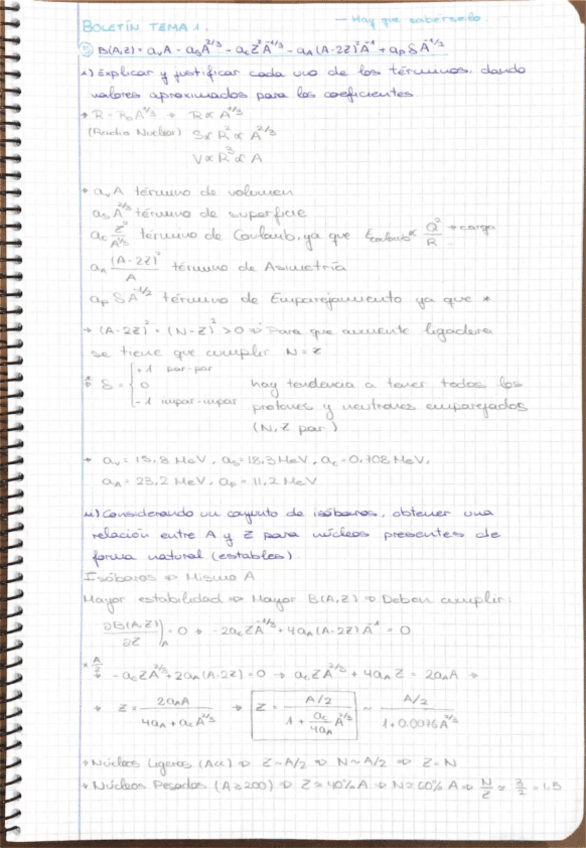 — Hay que saberselo.
BOLETÍN TEMA 1.
⑤ B(A,Z) = aᵥA - aₛA^{2/3} - a_c Z² A^{-1/3} - a_A (A-2Z)² A^{-1} + a_p δ A^{-1/2}
i) Explicar y justificar cada uno de los términos, dando
valores aproximados para los coeficientes
→ R = R₀A^{1/3} → R ∝ A^{1/3}
(Radio Nuclear) S ∝ R² ∝ A^{2/3}
V ∝ R³ ∝ A
→ aᵥA término de volumen
aₛA^{2/3} término de superficie
a_c Z²/A^{1/3} término de Coulomb, ya que E_coulomb ∝ Q²/R → carga
a_A (A-2Z)²/A término de Asimetría
a_p δ A^{-1/2} término de Emparejamiento ya que *
→ (A-2Z)² = (N-Z)² > 0 ⇒ Para que aumente ligadura
se tiene que cumplir N = Z
* δ = { +1 par-par
0 hay tendencia a tener todos los
-1 impar-impar protones y neutrones emparejados
(N, Z par)
→ aᵥ = 15,8 MeV, aₛ = 18,3 MeV, a_c = 0,708 MeV,
a_A = 23,2 MeV, a_p = 11,2 MeV
ii) Considerando un conjunto de isóbaros, obtener una
relación entre A y Z para núcleos presentes de
forma natural (estables).
Isóbaros ⇒ Mismo A
Mayor estabilidad ⇒ Mayor B(A,Z) ⇒ Deben cumplir:
∂B(A,Z)/∂Z |_A = 0 → -2a_c Z A^{-1/3} + 4a_A (A-2Z) A^{-1} = 0
× A/2 → -a_c Z A^{2/3} + 2a_A (A-2Z) = 0 → a_c Z A^{2/3} + 4a_A Z = 2a_A A →
→ Z = 2a_A A / (4a_A + a_c A^{2/3}) → Z = (A/2) / (1 + (a_c/4a_A) A^{2/3}) ~ (A/2) / (1 + 0.0076 A^{2/3})
→ Núcleos Ligeros (A↓↓) ⇒ Z ~ A/2 ⇒ N ~ A/2 ⇒ Z = N
→ Núcleos Pesados (A ≥ 200) ⇒ Z ≈ 40% A ⇒ N ≈ 60% A ⇒ N/Z ≈ 3/2 = 1,5